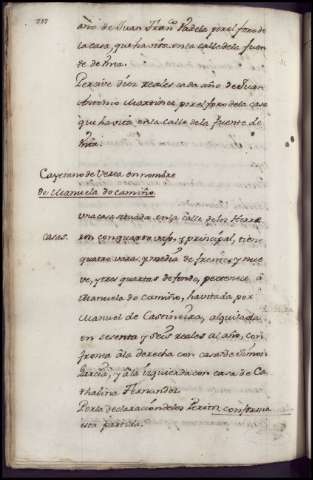 año de Juan Fran.co Padela por el foro de
la casa, que havita en la calle de la fuen
te de Una.
Percive dos reales cada año de Juan
Antonio Martinez, por el foro de la casa
que havita en la calle de la fuente de
Una.
Cayetano de Verea en nombre
de Manuela do camiño.
Casas.
Una casa situada en la calle de los Herre
ron con quarto vajo, y principal, tiene
quatro varas y media de frente, y nue
ve, y tres quartas de fondo, pertenece à
Manuela do camiño, havitada por
Manuel de Castiñeira, alquilada
en sesenta y seis reales al año, con
fronta à la derecha con casa de Simon
Garcia, y à la izquierda con casa de Ca
thalina Fernandez
Por la declaracion de los Peritos conforma
esta partida.